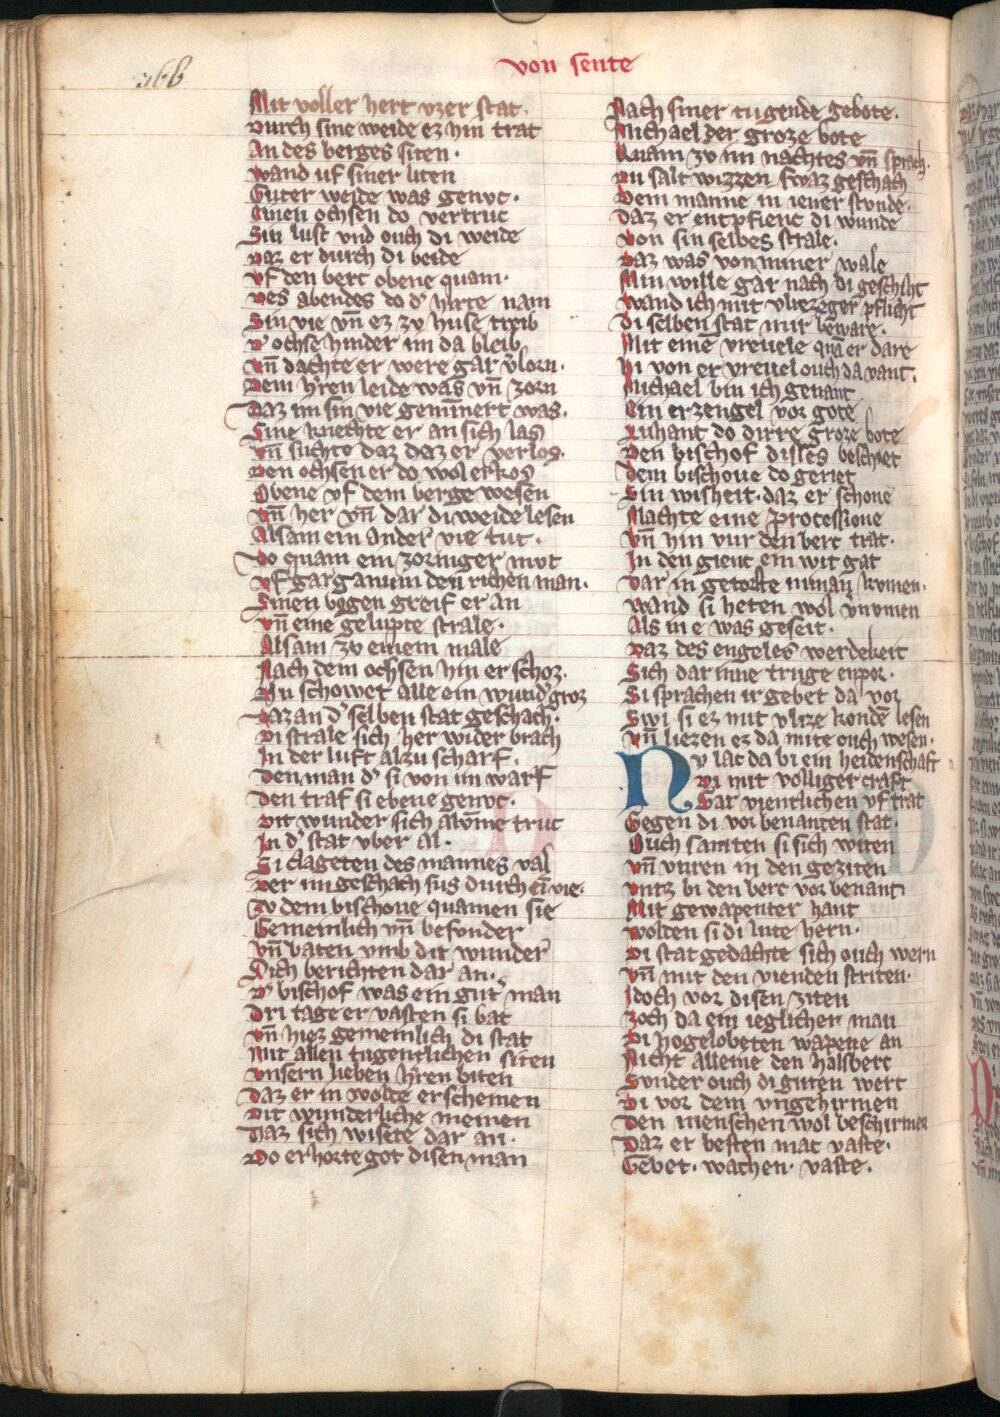 von sente
Mit voller hert vzer stat.
Durch sine weide ez hin trat
An des berges siten.
Wand uf siner liten
Guter weide was genvc.
Einen ochsen do vertruc
Sin lust vnd ouch di weide
Daz er durch di beide
Vf den berc obene quam.
Des abendes do d' hirte nam
Sin vie vn̄ ez zv huse treib
D' ochse hinder im da bleib
Vn̄ dachte er were gar v'lorn.
Dem h'ren leide was vn̄ zorn
Daz im sin vie gemin̄ert was.
Sine knechte er an sich las
Vn̄ suchte daz daz er verlos.
Den ochsen er do wol erkos
Obene vf dem berge wesen
Vn̄ her vn̄ dar di weide lesen
Alsam ein ander vie tut.
Do quam ein zorniger mvt
Vf garganum den richen man.
Sinen bogen greif er an
Vn̄ eine gelupte strale.
Alsam zv einem male
Nach dem ochsen hin er schoz.
Nu schowet alle ein wund' groz
Daz an d' selben stat geschach.
Di strale sich her wider brach
In der luft alzu scharf.
Den man d' si von im warf
Den traf si ebene genvc.
Dit wunder sich alvm̄e truc
In d' stat vber al.
Si clageten des mannes val
Der im geschach sus durch ein vie.
Zv dem bischoue quamen sie
Gemeinlich vn̄ besonder
Vn̄ baten vmb dit wunder
Sich berichten dar an.
D' bischof was ein gut' man
Dri tage er vasten si bat
Vn̄ hiez gemeinlich di stat
Mit allen tugentlichen siten
Vnsern lieben h'ren biten
Daz er in wolde erscheinen
Dit wunderliche meinen
Daz sich wisete dar an.
Do erhorte got disen man
Nach siner tugende gebote.
Michael der groze bote
Quam zv im nachtes vn̄ sprach.
Du salt wizzen swaz geschach
Dem manne in iener stvnde.
Daz er entpfienc di wunde
Von sin selbes strale.
Daz was von miner wale
Min wille gar nach di geschiht
Wand ich mit vlizeger pflicht
Di selben stat mir beware.
Mit eime vreuele quā er dare
Di von er vreuel ouch da vant.
Michael bin ich genant
Ein erzengel vor gote
Zuhant do dirre groze bote
Den bischof disses beschiet
Dem bischoue do geriet
Sin wisheit. daz er schone
Machte eine processione
Vn̄ hin vur den berc trat.
In den gienc ein wit gat
Dar in getorste niman kvmen.
Wand si heten wol v'nvmen
Als in e was geseit.
Daz des engeles werdekeit
Sich dar inne truge enpor.
Si sprachen ir gebet da vor
Swi si ez mit vlize konden lesen
Vn̄ liezen ez da mite ouch wesen.
Nv lac da bi ein heidenschaft
Di mit volliger craft
Gar vientlichen vf trat
Gegen di vor benanten stat.
Ouch samten si sich witen
Vn̄ vuren in den geziten
Vntz bi den berc vor benant
Mit gewapenter hant
Wolden si di lute hern.
Di stat gedachte sich ouch wern
Vn̄ mit den vienden striten.
Idoch vor disen ziten
Zoch da ein ieglicher man
Di hogelobeten wapene an
Nicht alleine den halsberc
Svnder ouch di guten werc
Di vor dem vngehirmen
Den menschen wol beschirmen
Daz er besten mac vaste.
Gebet. wachen. vaste.